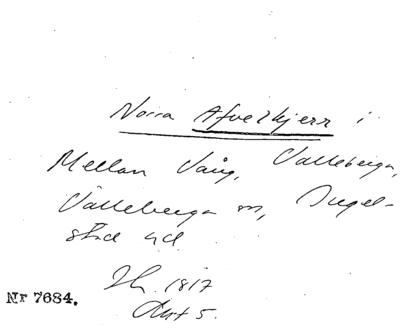 Norra Afverkjerr i
Mellan Vång, Valleberga,
Valleberga sn, Ingel-
stad hd
1817
Akt 5.
Nr 7684.